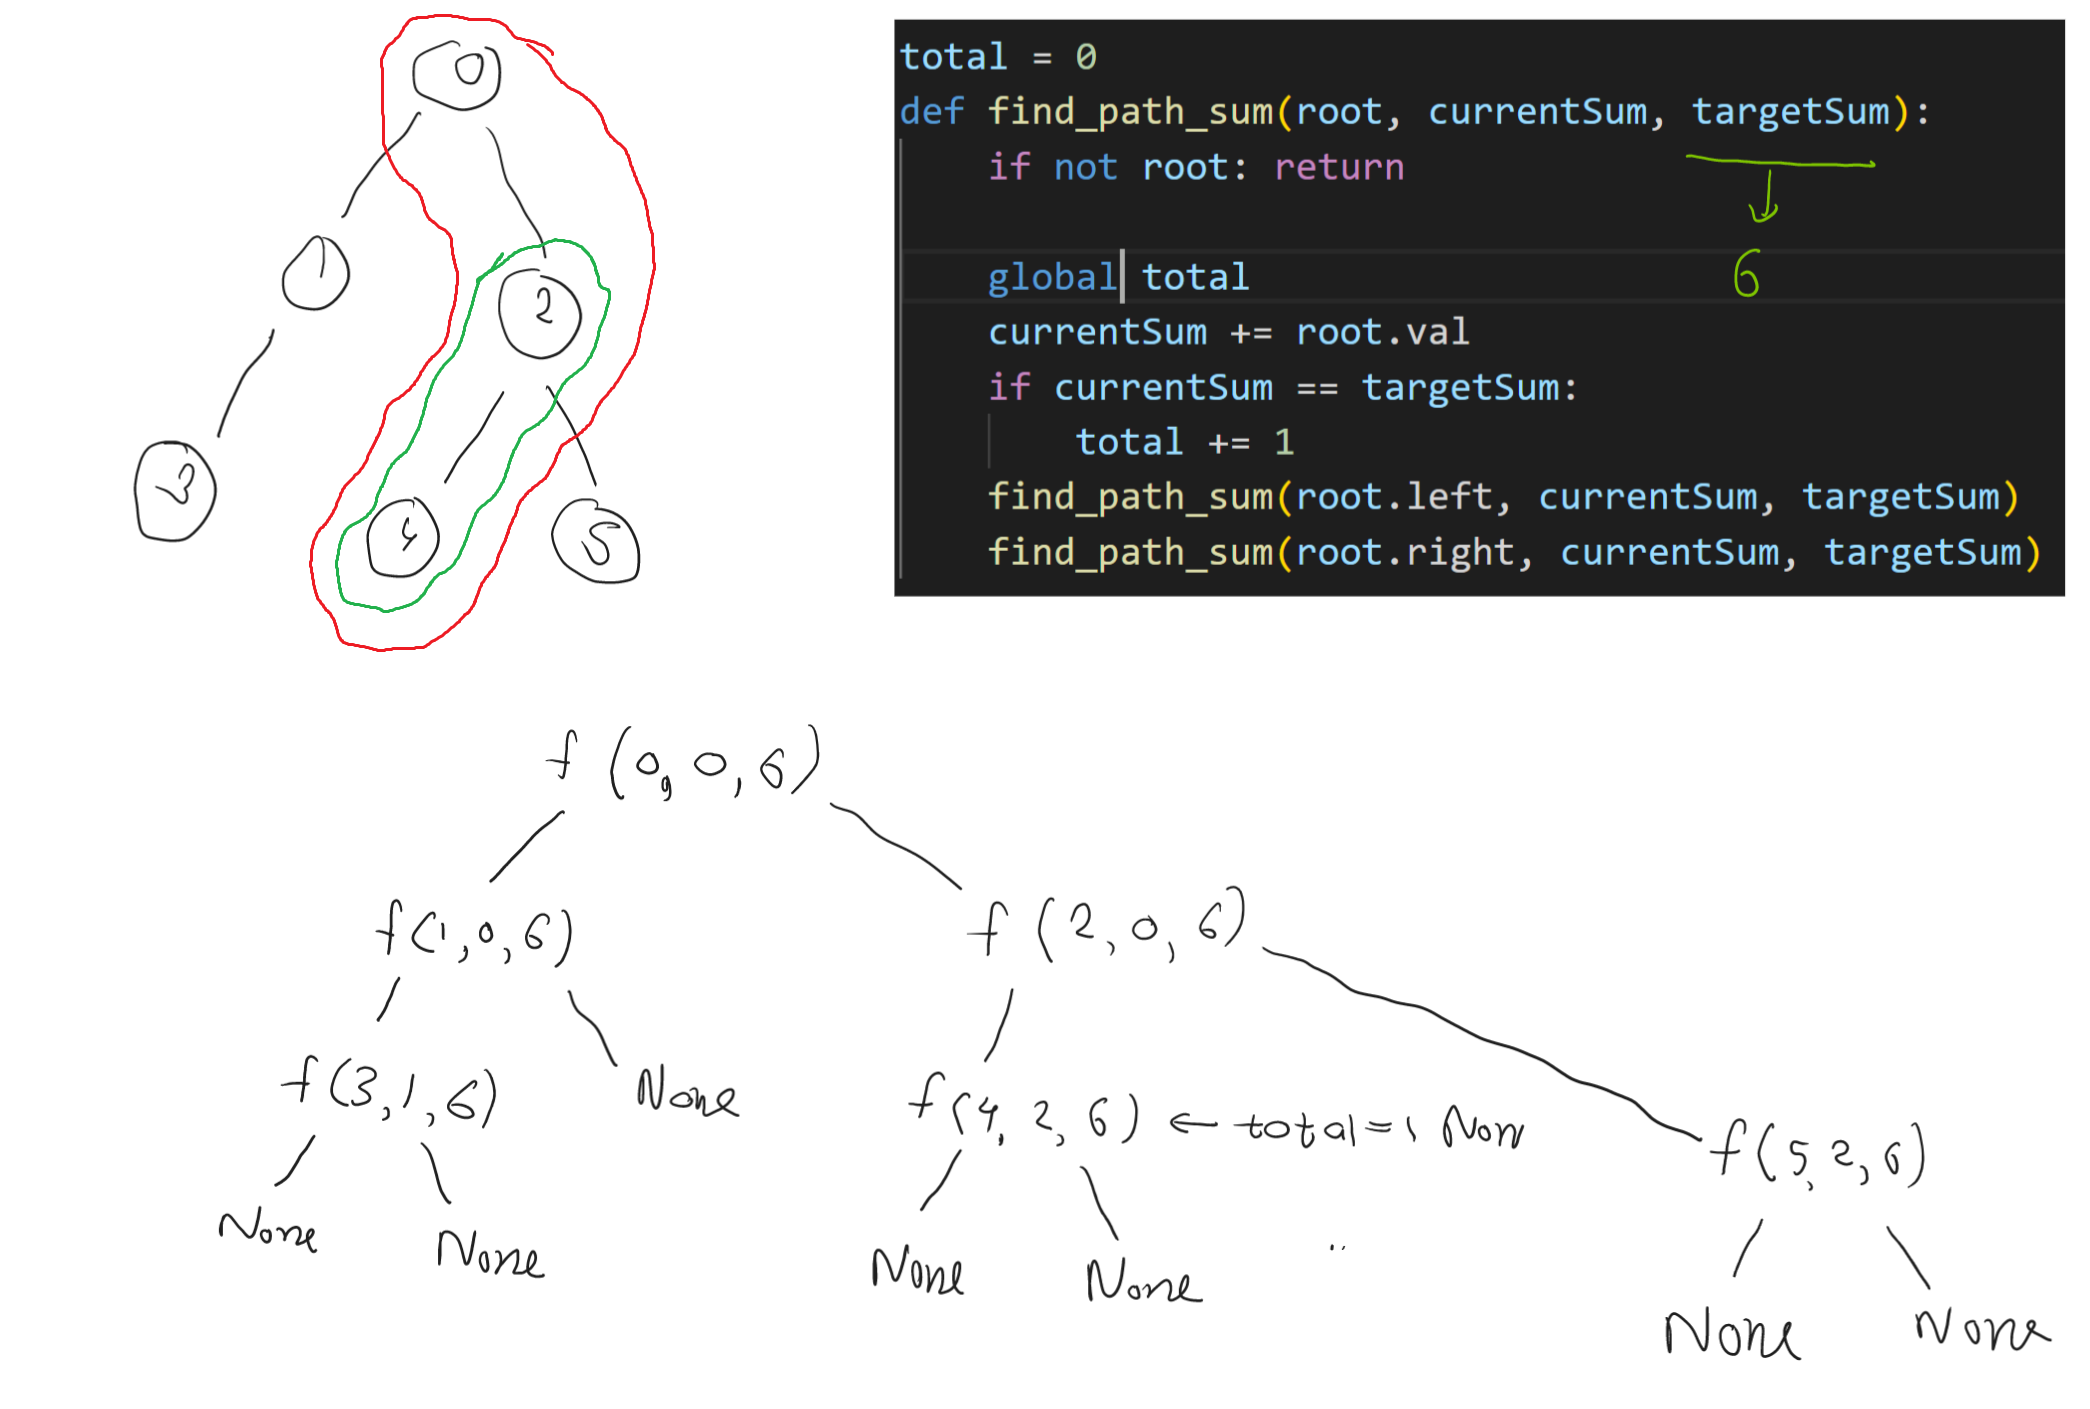 0
1
2
3
4
5
total = 0
def find_path_sum(root, currentSum, targetSum):
    if not root: return
    global total
    currentSum += root.val
    if currentSum == targetSum:
        total += 1
    find_path_sum(root.left, currentSum, targetSum)
    find_path_sum(root.right, currentSum, targetSum)
6
f (0, 0, 6)
f(1, 0, 6)
f (2, 0, 6)
f(3, 1, 6)
None
f(4, 2, 6) ← total = 1 Now
f(5, 2, 6)
None
None
None
None
None
None